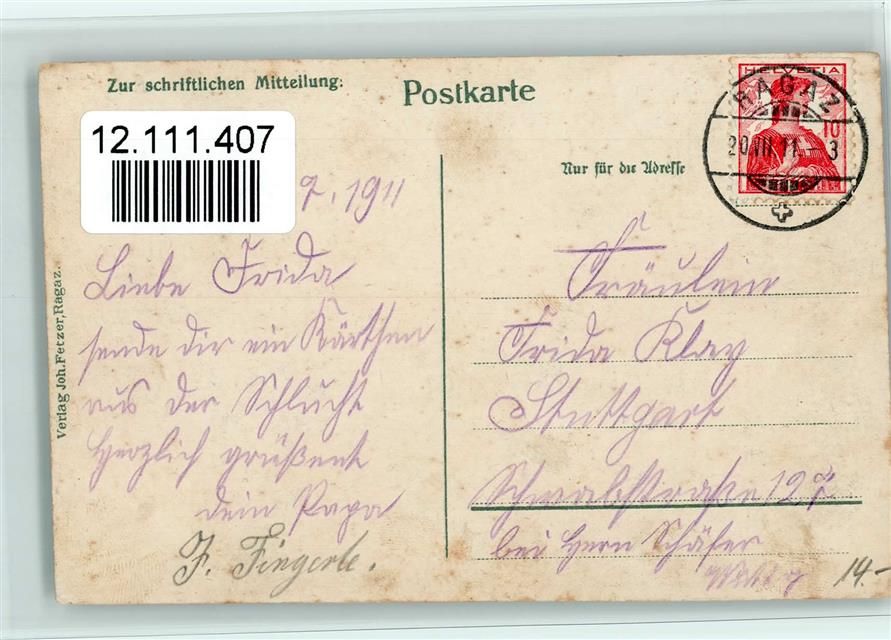 Zur schriftlichen Mitteilung:
Postkarte
12.111.407
HELVETIA
10
RAGAZ
20 VII 11 3
Nur für die Adresse
7. 1911
Liebe Frida
sende dir ein Kärtchen
aus der Schlucht
Herzlich grüßend
dein Papa
F. Fingerle.
Fräulein
Frida Klay
Stuttgart
Schwabstraße
bei Herrn Schäfer
14.-
Verlag Joh. Fetzer, Ragaz.